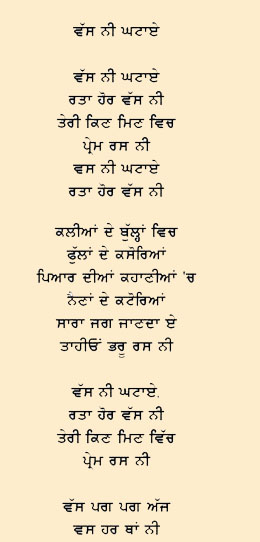 ਵੱਸ ਨੀ ਘਟਾਏ
ਵੱਸ ਨੀ ਘਟਾਏ
ਰਤਾ ਹੋਰ ਵੱਸ ਨੀ
ਤੇਰੀ ਕਿਣ ਮਿਣ ਵਿਚ
ਪ੍ਰੇਮ ਰਸ ਨੀ
ਵਸ ਨੀ ਘਟਾਏ
ਰਤਾ ਹੋਰ ਵੱਸ ਨੀ
ਕਲੀਆਂ ਦੇ ਬੁੱਲ੍ਹਾਂ ਵਿਚ
ਫੁੱਲਾਂ ਦੇ ਕਸੋਰਿਆਂ
ਪਿਆਰ ਦੀਆਂ ਕਹਾਣੀਆਂ 'ਚ
ਨੈਣਾਂ ਦੇ ਕਟੋਰਿਆਂ
ਸਾਰਾ ਜਗ ਜਾਣਦਾ ਏ
ਤਾਹੀਓਂ ਭਰੂ ਰਸ ਨੀ
ਵੱਸ ਨੀ ਘਟਾਏ.
ਰਤਾ ਹੋਰ ਵੱਸ ਨੀ
ਤੇਰੀ ਕਿਣ ਮਿਣ ਵਿੱਚ
ਪ੍ਰੇਮ ਰਸ ਨੀ
ਵੱਸ ਪਗ ਪਗ ਅੱਜ
ਵਸ ਹਰ ਥਾਂ ਨੀ